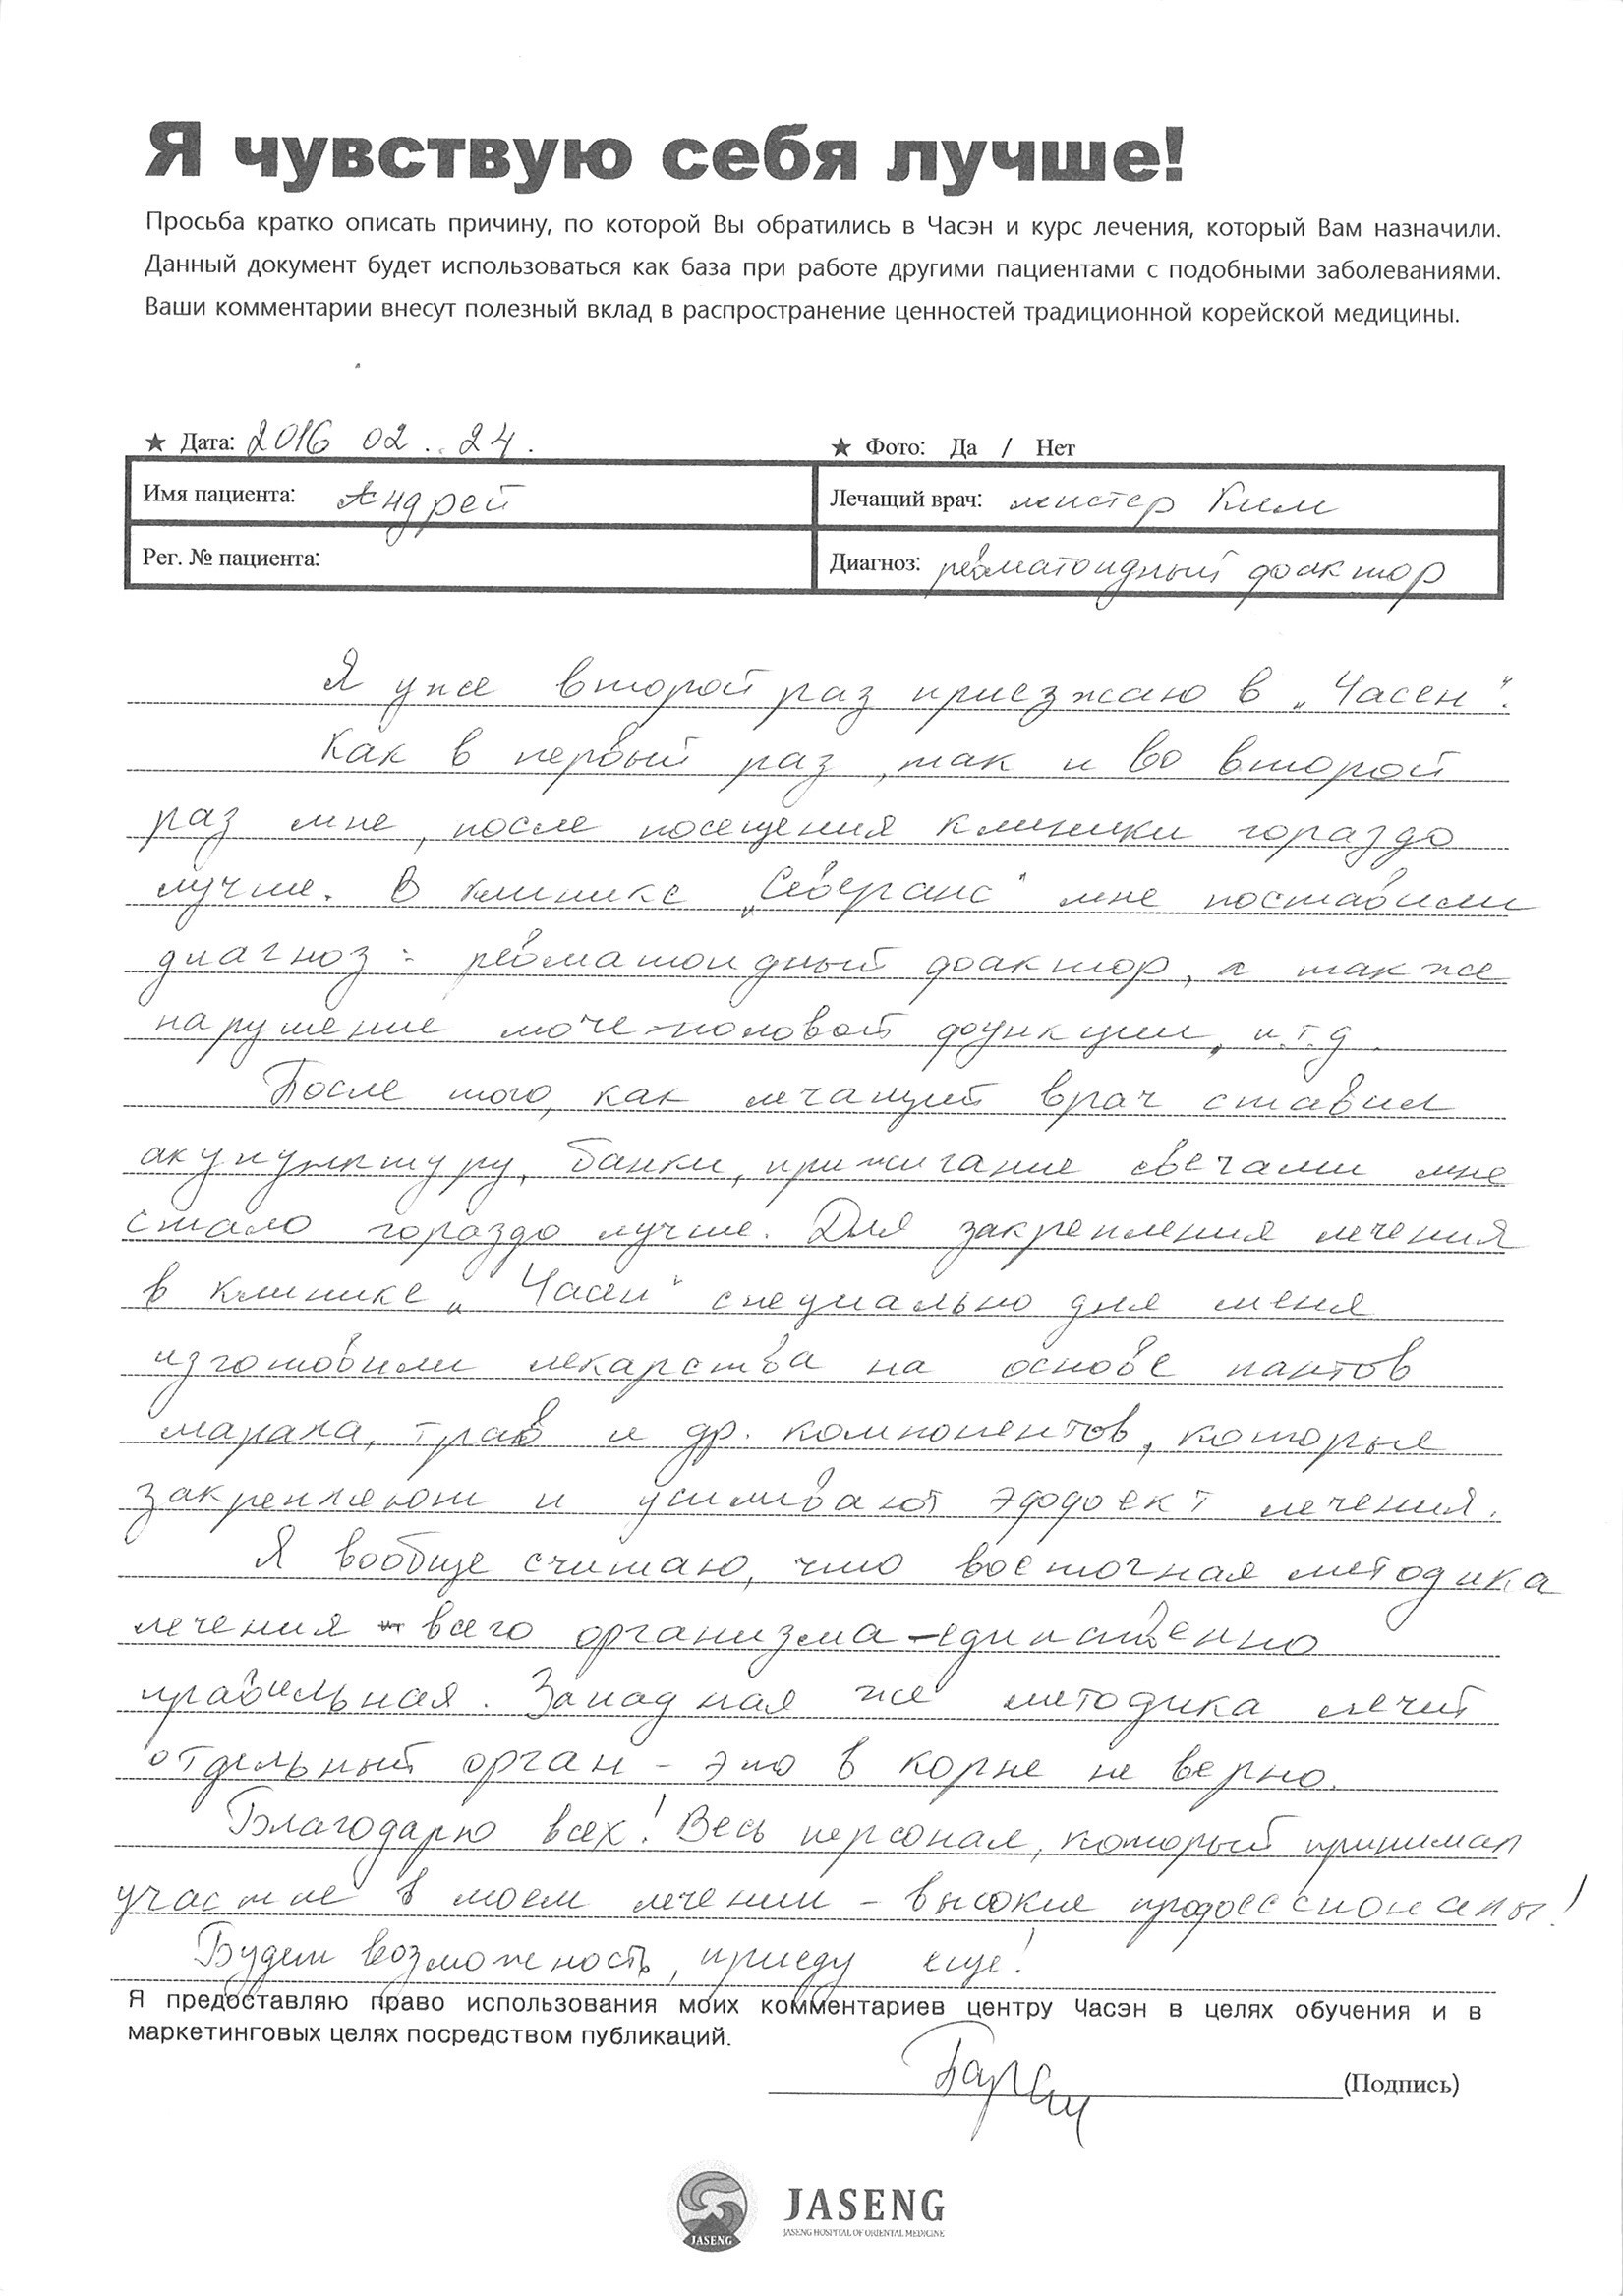 Я чувствую себя лучше!
Просьба кратко описать причину, по которой Вы обратились в Часэн и курс лечения, который Вам назначили.
Данный документ будет использоваться как база при работе другими пациентами с подобными заболеваниями.
Ваши комментарии внесут полезный вклад в распространение ценностей традиционной корейской медицины.
★ Дата: 2016 02..24. ★ Фото: Да / Нет
Имя пациента: Андрей Лечащий врач: мистер Ким
Рег. № пациента: Диагноз: ревматоидный фактор
Я уже второй раз приезжаю в „Часен".
Как в первый раз, так и во второй
раз мне, после посещения клиники гораздо
лучше. В клинике „Северанс" мне поставили
диагноз: ревматоидный фактор, а так же
нарушение моче-половой функции, и.т.д.
После того, как лечащий врач ставил
акупунктуру, банки, прижигание свечами мне
стало гораздо лучше. Для закрепления лечения
в клинике „Часен" специально для меня
изготовили лекарства на основе пантов
марала, трав и др. компонентов, которые
закрепляют и усиливают эффект лечения.
Я вообще считаю, что восточная методика
лечения всего организма – единственно
правильная. Западная же методика лечит
отдельный орган – это в корне не верно.
Благодарю всех! Весь персонал, который принимал
участие в моем лечении – высокие профессионалы!
Будет возможность, приеду еще!
Я предоставляю право использования моих комментариев центру Часэн в целях обучения и в
маркетинговых целях посредством публикаций.
(Подпись)
JASENG
JASENG
JASENG HOSPITAL OF ORIENTAL MEDICINE